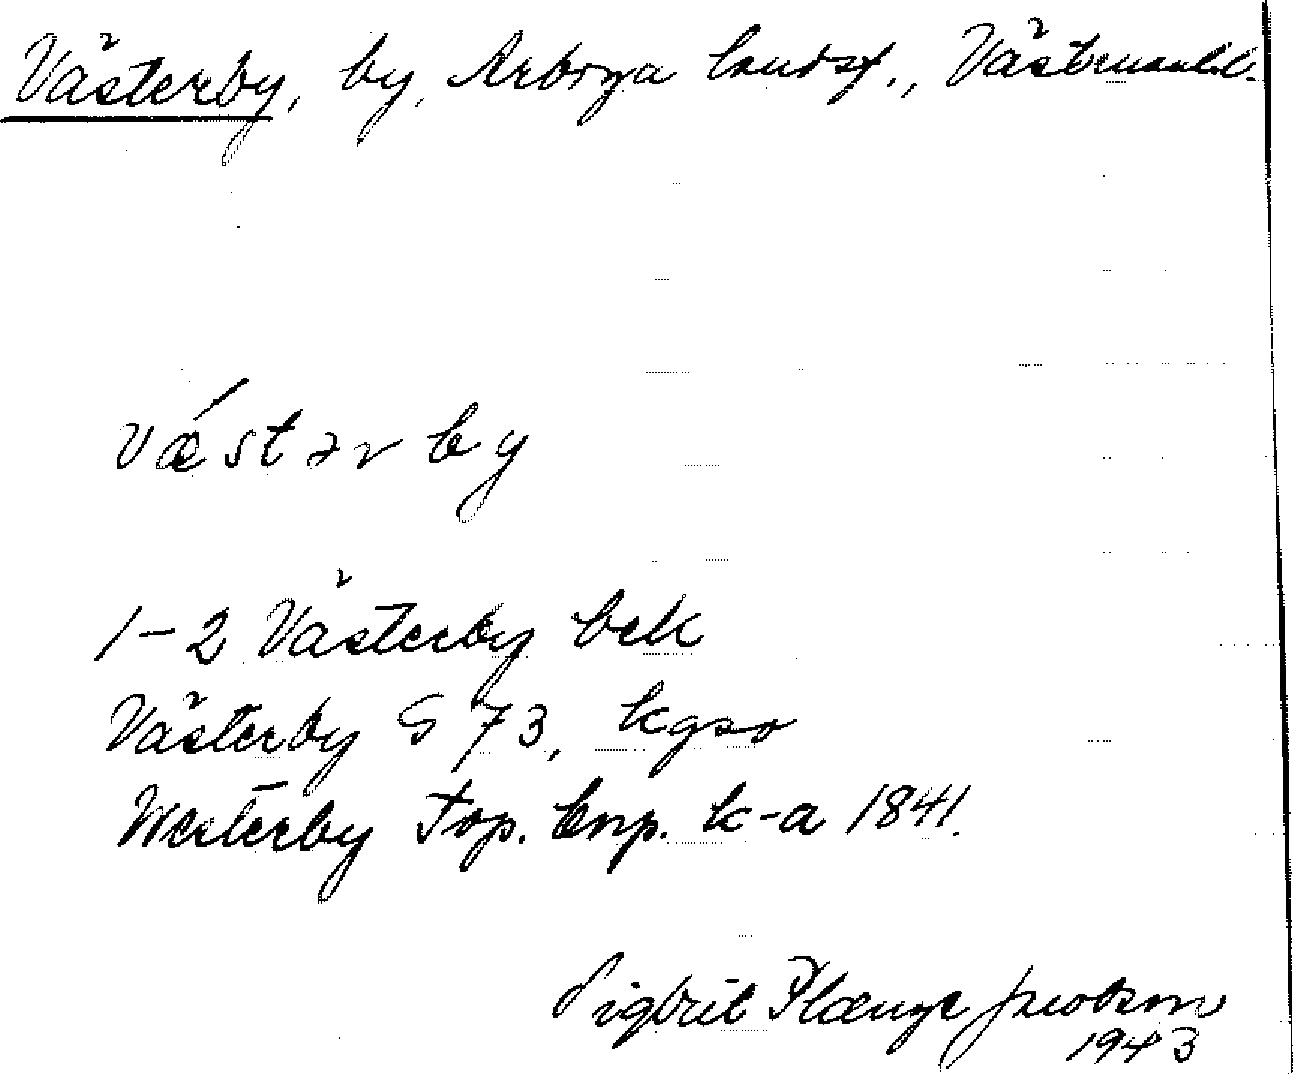 Västerby, by, Arboga landsf., Västmanl.l.
væ´stərby
1-2 Västerby bek
Västerby G 73, kgso
Westerby Top. Corp. k-a 1841.
Sigbrit Plænge Jacobson
1943